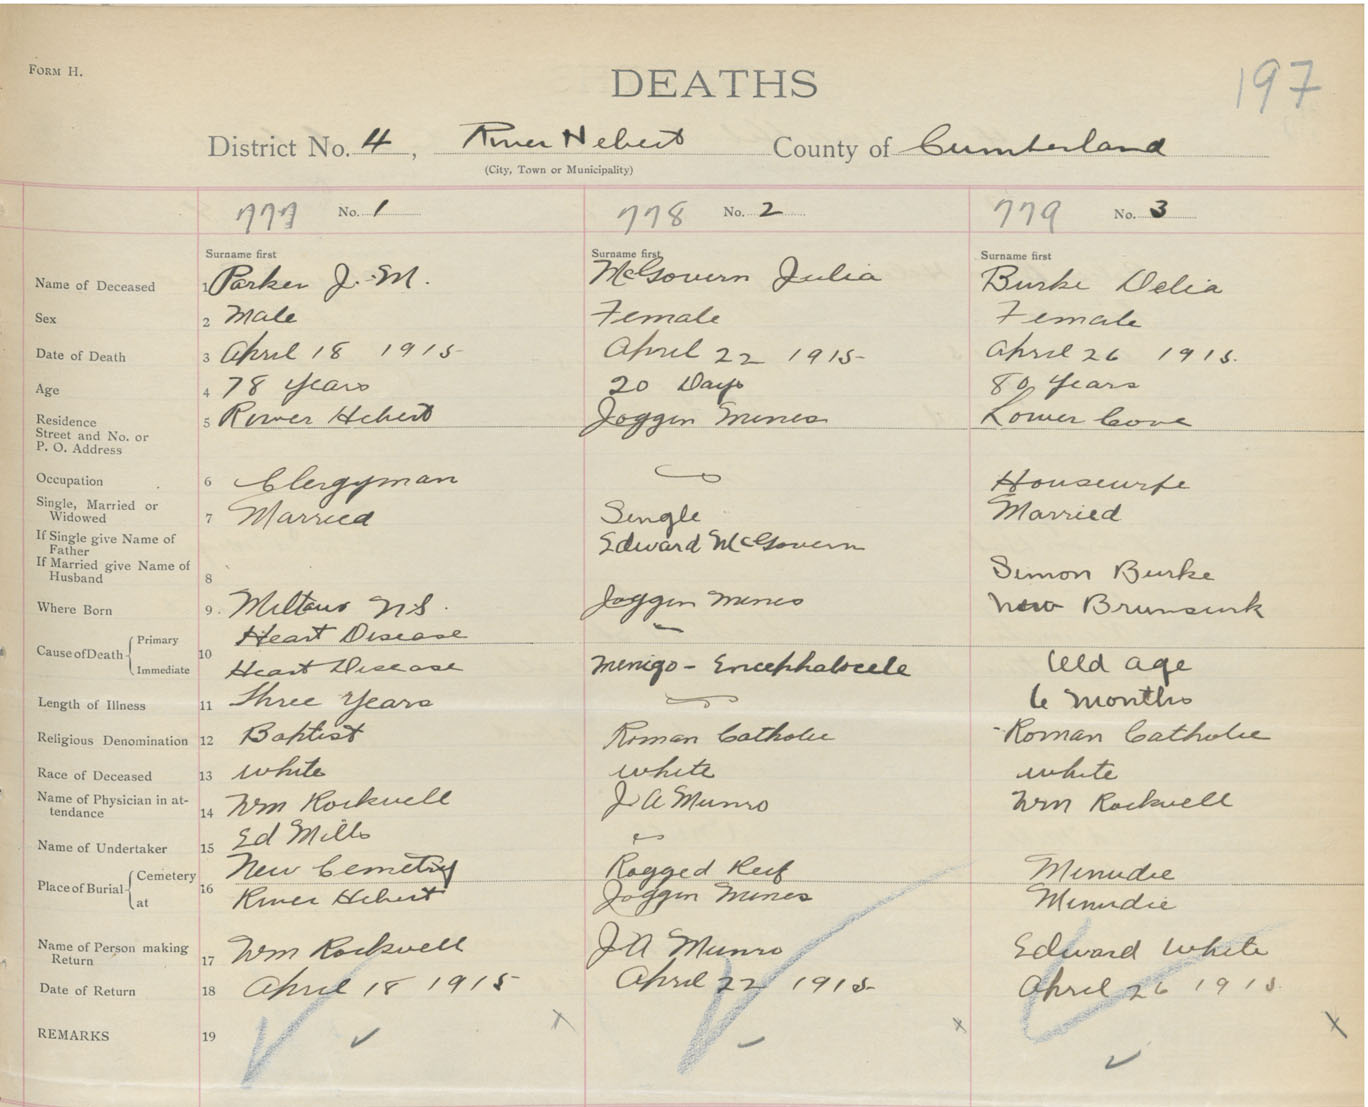 FORM H.
DEATHS
197
District No. 4, River Hebert County of Cumberland
(City, Town or Municipality)
777 No. 1 778 No. 2 779 No. 3
Surname first Surname first Surname first
Name of Deceased 1 Parker J. M. McGovern Julia Burke Delia
Sex 2 Male Female Female
Date of Death 3 April 18 1915 April 22 1915 April 26 1915.
Age 4 78 years 20 Days 80 years
Residence Street and No. or P. O. Address 5 River Hebert Joggin Mines Lower Cove
Occupation 6 Clergyman Housewife
Single, Married or Widowed 7 Married Single Married
If Single give Name of Father Edward McGovern
If Married give Name of Husband 8 Simon Burke
Where Born 9. N.S. Joggin Mines New Brunswick
Cause of Death Primary 10 Heart Disease
Immediate Heart Disease Menigo-Encephalocele Old age
Length of Illness 11 Three Years 6 Months
Religious Denomination 12 Baptist Roman Catholic Roman Catholic
Race of Deceased 13 white white white
Name of Physician in attendance 14 Wm Rockwell J A Munro Wm Rockwell
Name of Undertaker 15 Ed Mills
Place of Burial Cemetery 16 New Cemetry Ragged Reef Minudie
at River Hebert Joggin Mines Minudie
Name of Person making Return 17 Wm Rockwell J A Munro Edward White
Date of Return 18 April 18 1915 April 22 1915 April 26 1915
REMARKS 19